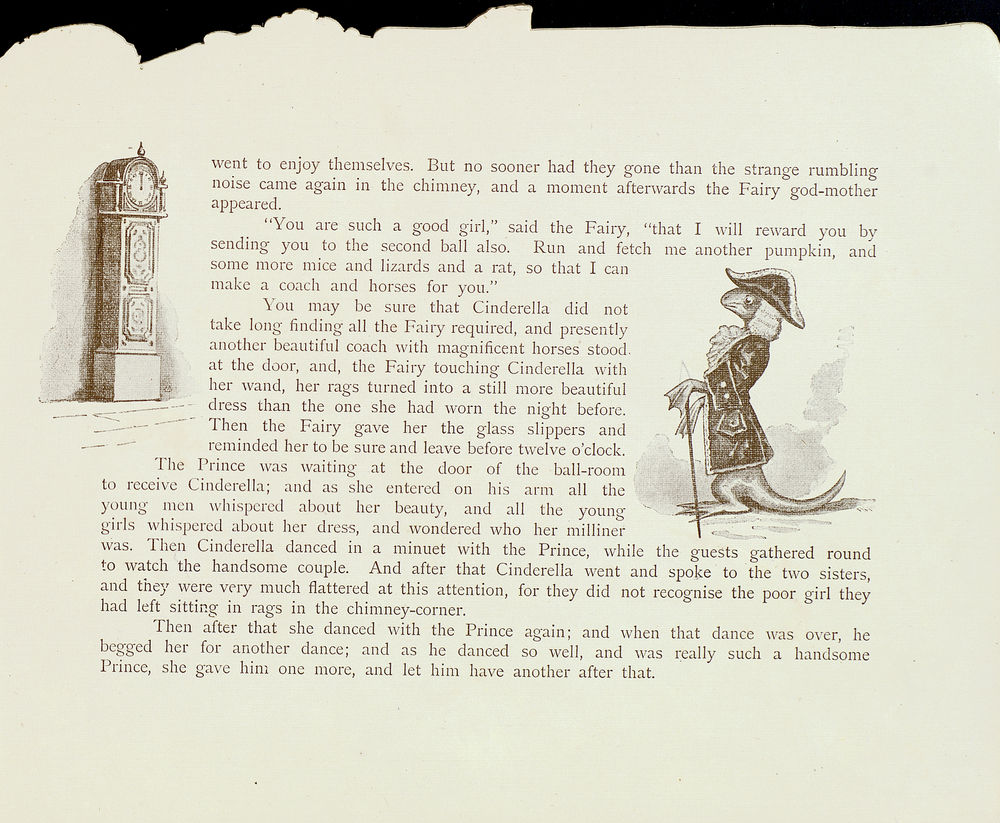 went to enjoy themselves. But no sooner had they gone than the strange rumbling
noise came again in the chimney, and a moment afterwards the Fairy god-mother
appeared.
"You are such a good girl," said the Fairy, "that I will reward you by
sending you to the second ball also. Run and fetch me another pumpkin, and
some more mice and lizards and a rat, so that I can
make a coach and horses for you."
You may be sure that Cinderella did not
take long finding all the Fairy required, and presently
another beautiful coach with magnificent horses stood
at the door, and, the Fairy touching Cinderella with
her wand, her rags turned into a still more beautiful
dress than the one she had worn the night before.
Then the Fairy gave her the glass slippers and
reminded her to be sure and leave before twelve o'clock.
The Prince was waiting at the door of the ball-room
to receive Cinderella; and as she entered on his arm all the
young men whispered about her beauty, and all the young
girls whispered about her dress, and wondered who her milliner
was. Then Cinderella danced in a minuet with the Prince, while the guests gathered round
to watch the handsome couple. And after that Cinderella went and spoke to the two sisters,
and they were very much flattered at this attention, for they did not recognise the poor girl they
had left sitting in rags in the chimney-corner.
Then after that she danced with the Prince again; and when that dance was over, he
begged her for another dance; and as he danced so well, and was really such a handsome
Prince, she gave him one more, and let him have another after that.